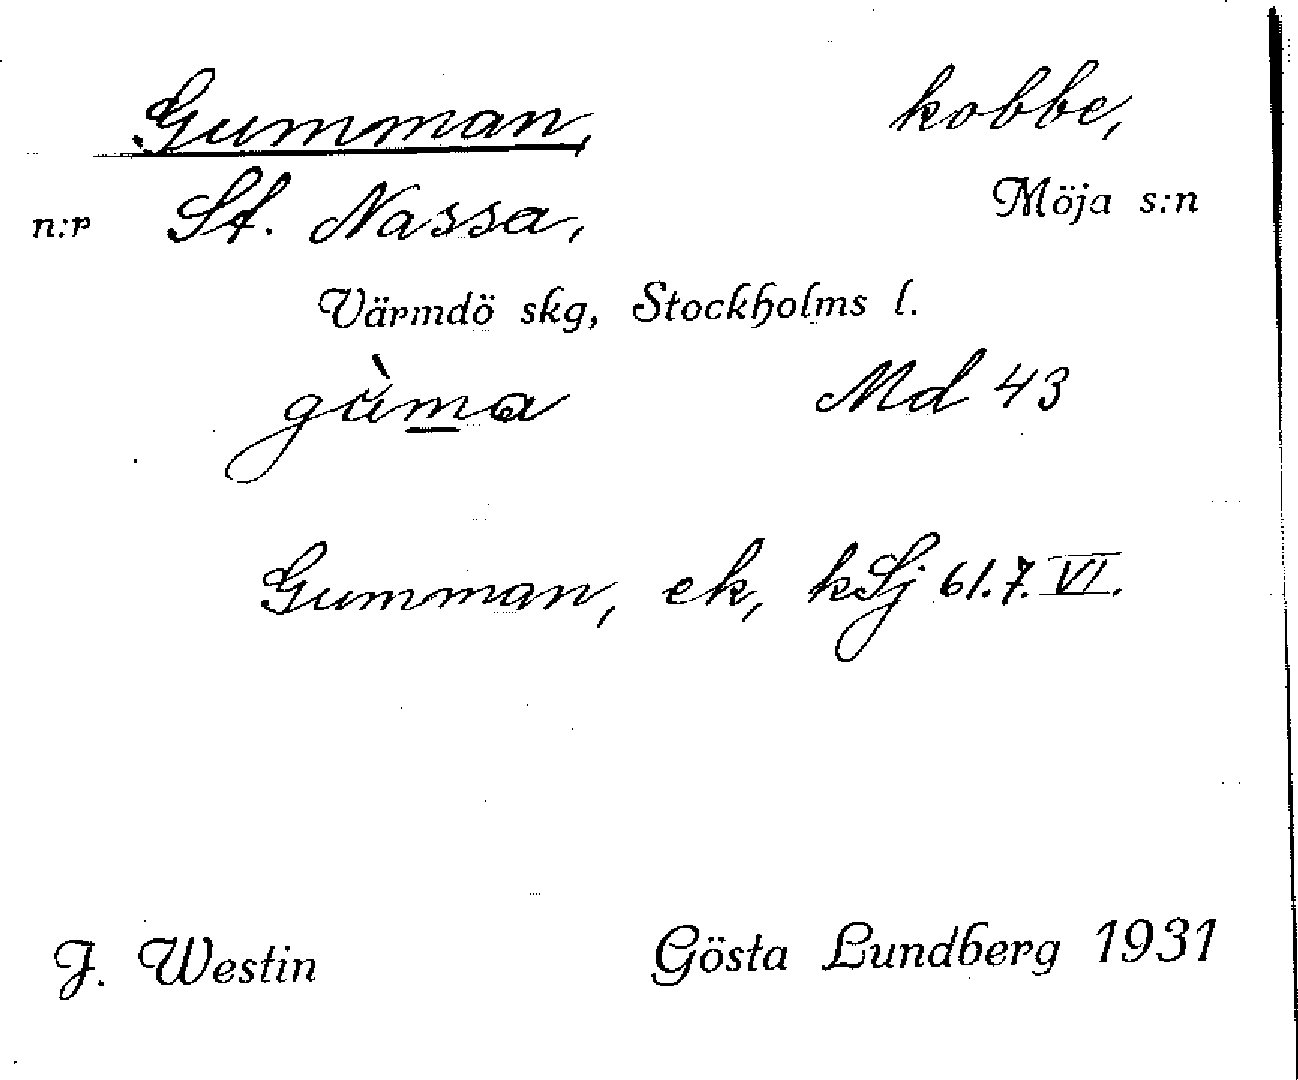 Gumman, kobbe,
n:r St. Nassa, Möja s:n
Värmdö skg, Stockholms l.
gùma Md 43
Gumman, ek, kSj 61.7. VI.
J. Westin Gösta Lundberg 1931